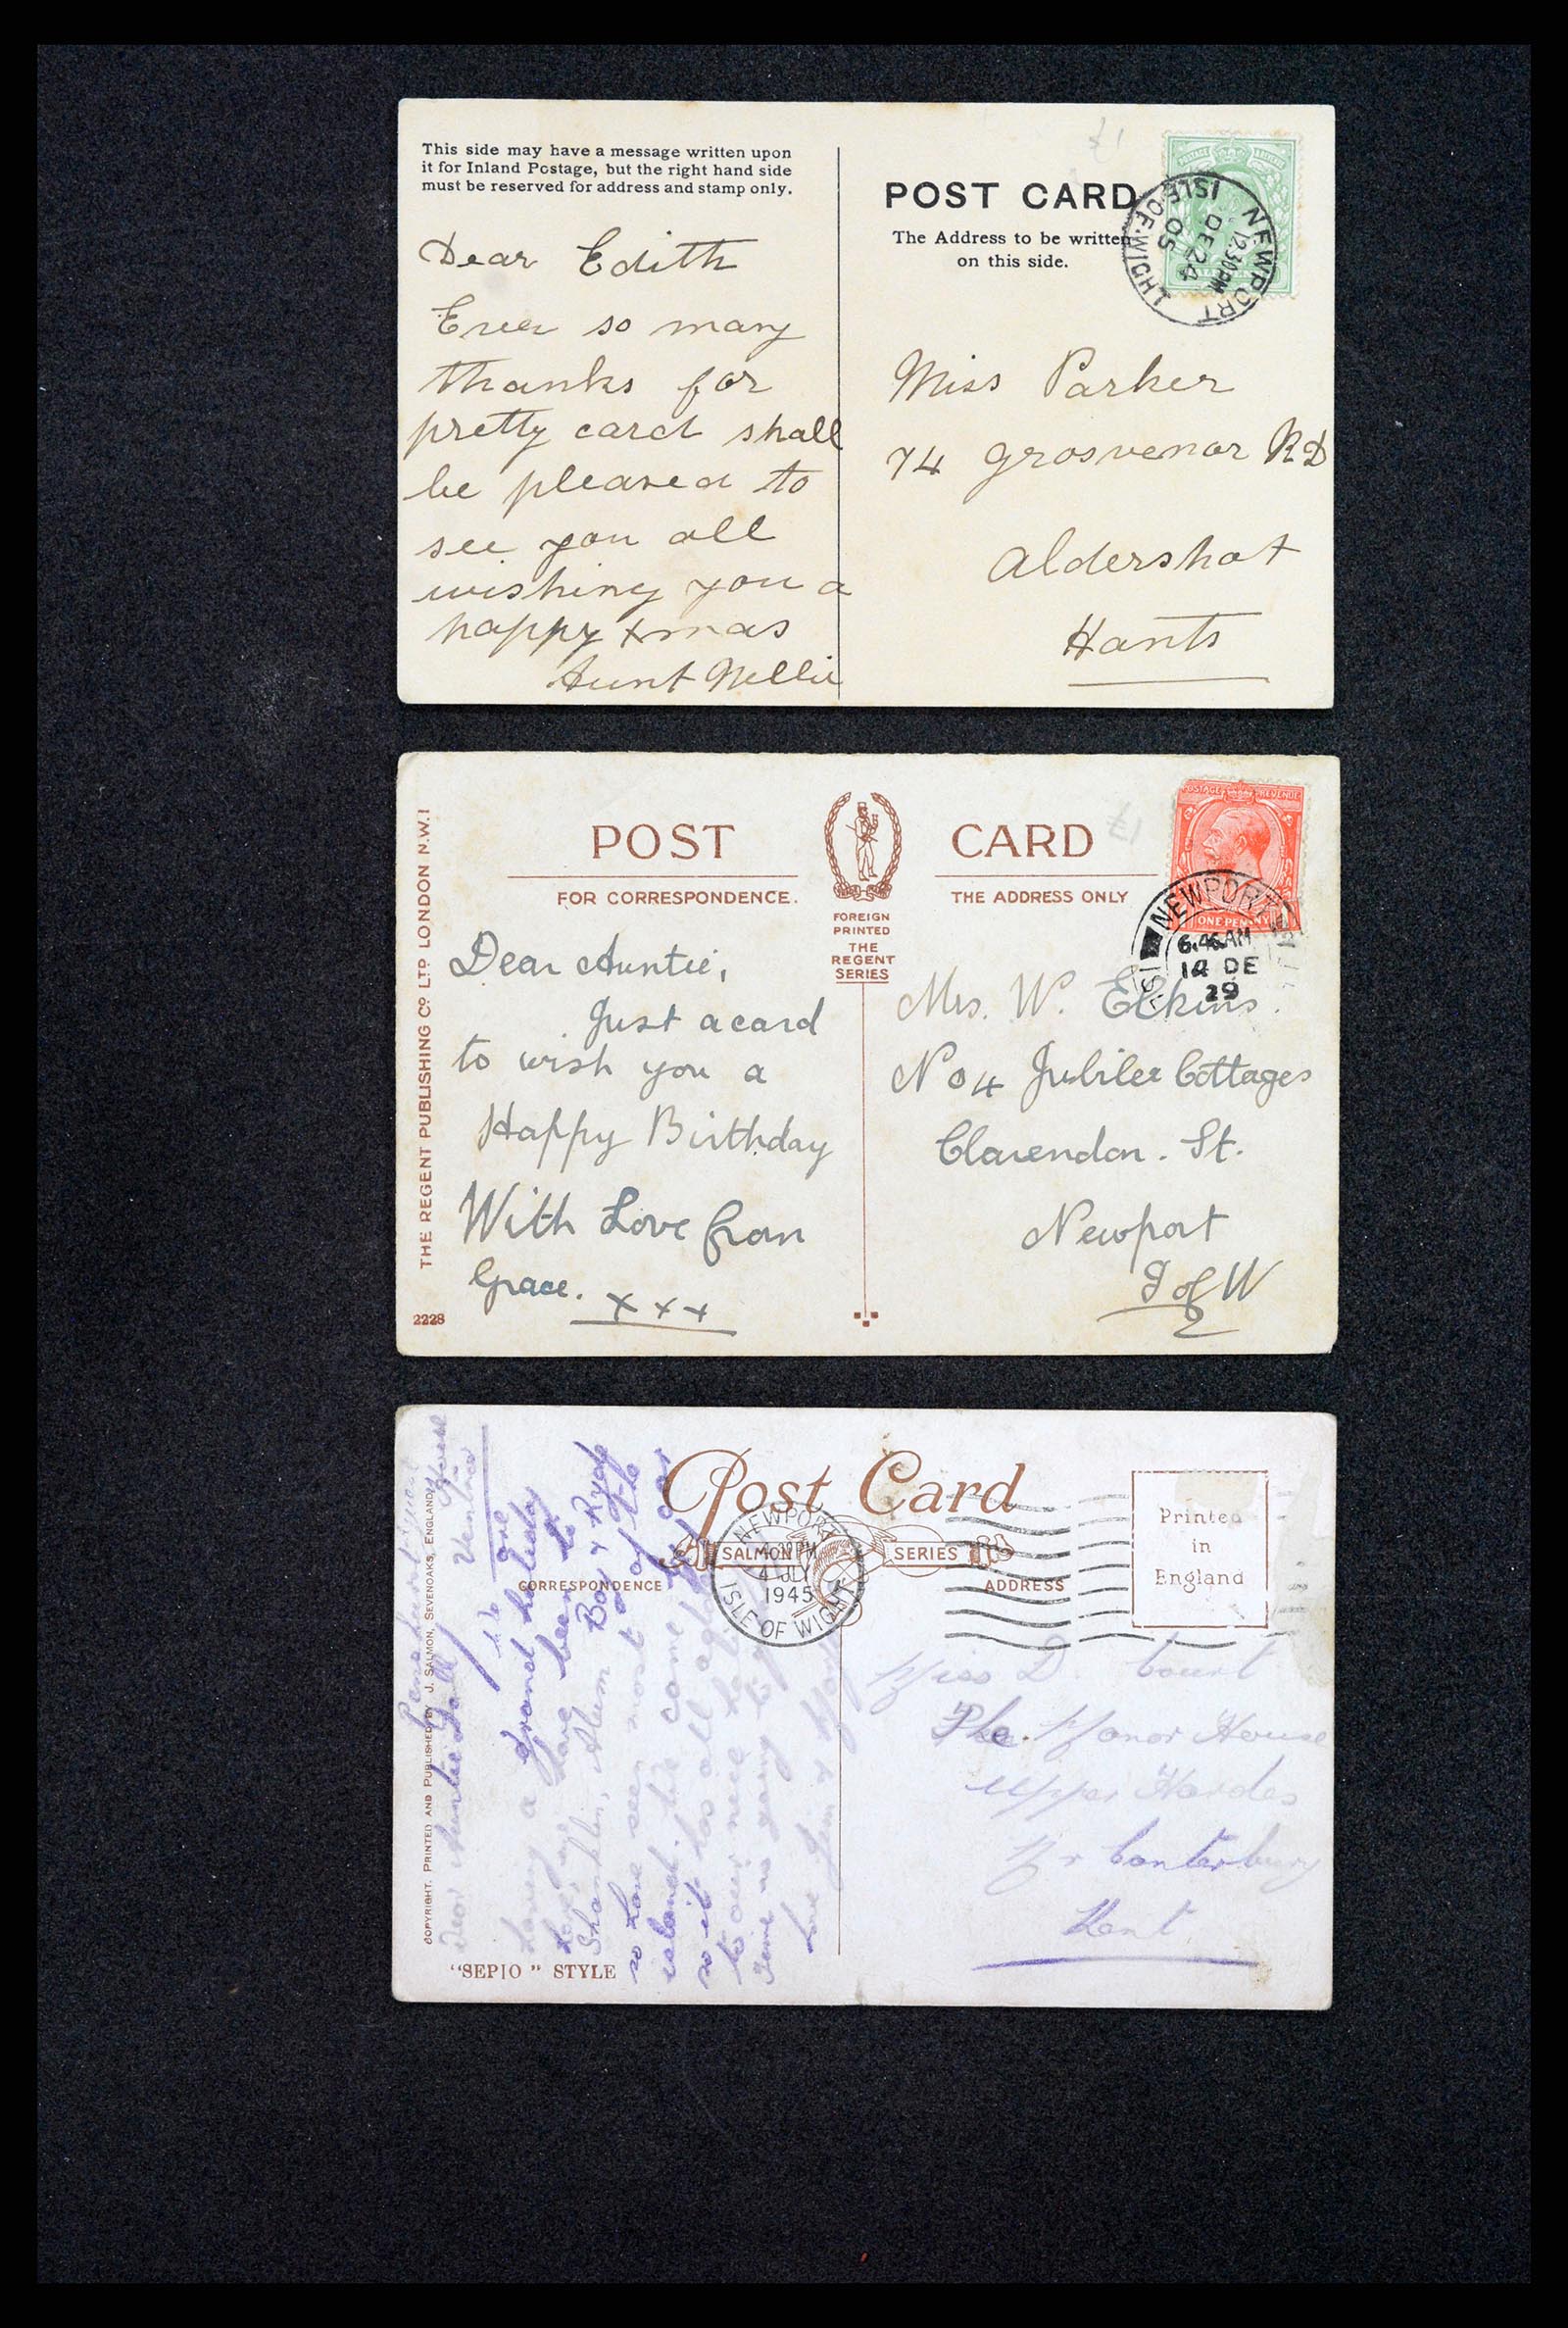 This side may have a message written upon
it for Inland Postage, but the right hand side
must be reserved for address and stamp only.
Dear Edith
Ever so many
thanks for
pretty card shall
be pleased to
see you all
wishing you a
happy Xmas
Aunt Nellie
£1
POST CARD
The Address to be written
on this side.
NEWPORT
12.30PM
DE 24
05
ISLE·OF·WIGHT
Miss Parker
74 Grosvenor RD
Aldershot
Hants
THE REGENT PUBLISHING Cº LTD LONDON N.W.1
2228
POST CARD
FOR CORRESPONDENCE.
THE ADDRESS ONLY
FOREIGN
PRINTED
THE
REGENT
SERIES
£1
POSTAGE REVENUE
ONE PENNY
NEWPORT
14 DE
29
Dear Auntie,
Just a card
to wish you a
Happy Birthday
With Love from
Grace. x x x
Mrs. W. Elkins.
No 4 Jubilee Cottages
Clarendon. St.
Newport
I of W
Post Card
SALMON SERIES
CORRESPONDENCE
ADDRESS
Printed
in
England
NEWPORT
PM
4 JLY
1945
ISLE OF WIGHT
COPYRIGHT. PRINTED AND PUBLISHED BY J. SALMON, SEVENOAKS, ENGLAND
"SEPIO" STYLE
House
Ventnor
Dear Auntie Doll
Having a grand holiday
have been to
Shanklin, Alum Bay & Ryde
so have seen most of the
island, we came by car
so it has all
to our nice
Time is going
Love
Miss D. Court
The Manor House
Upper Hardes
Nr Canterbury
Kent